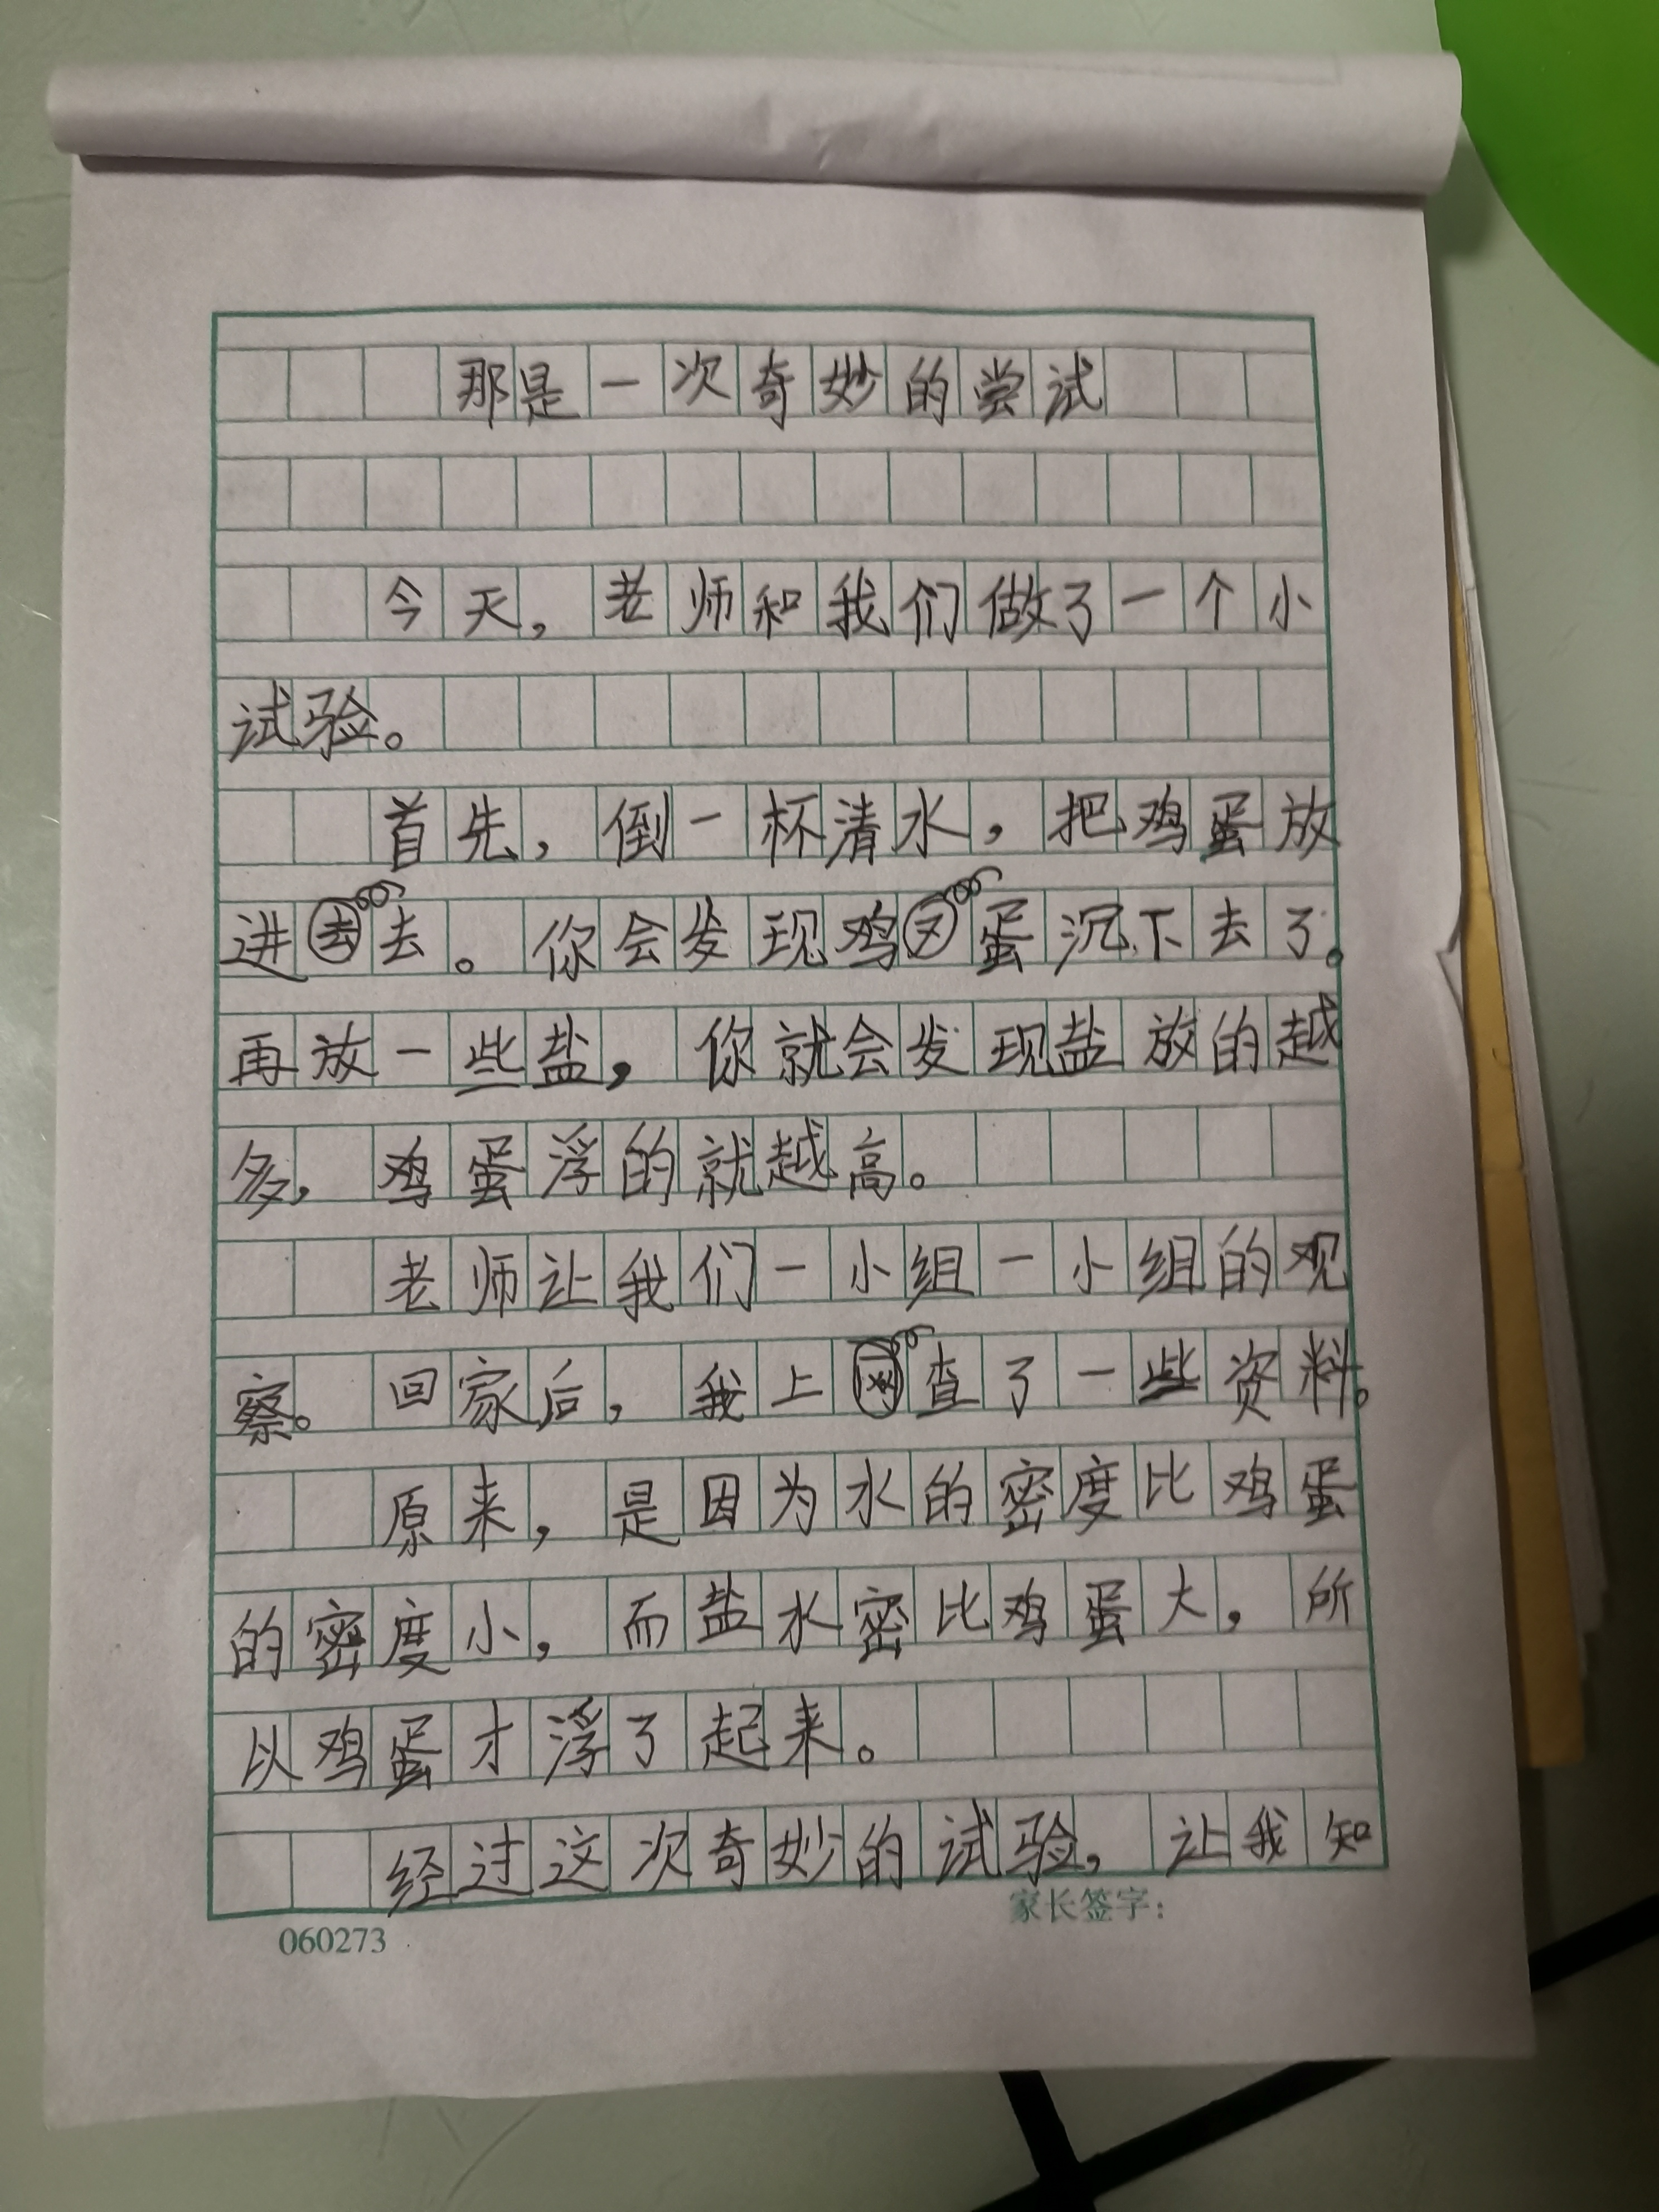 那是一次奇妙的尝试
今天，老师和我们做了一个小
试验。
首先，倒一杯清水，把鸡蛋放
进去。你会发现鸡蛋沉下去了。
再放一些盐，你就会发现盐放的越
多，鸡蛋浮的就越高。
老师让我们一小组一小组的观
察。回家后，我上查了一些资料。
原来，是因为水的密度比鸡蛋
的密度小，而盐水密比鸡蛋大，所
以鸡蛋才浮了起来。
经过这次奇妙的试验，让我知
家长签字：
060273